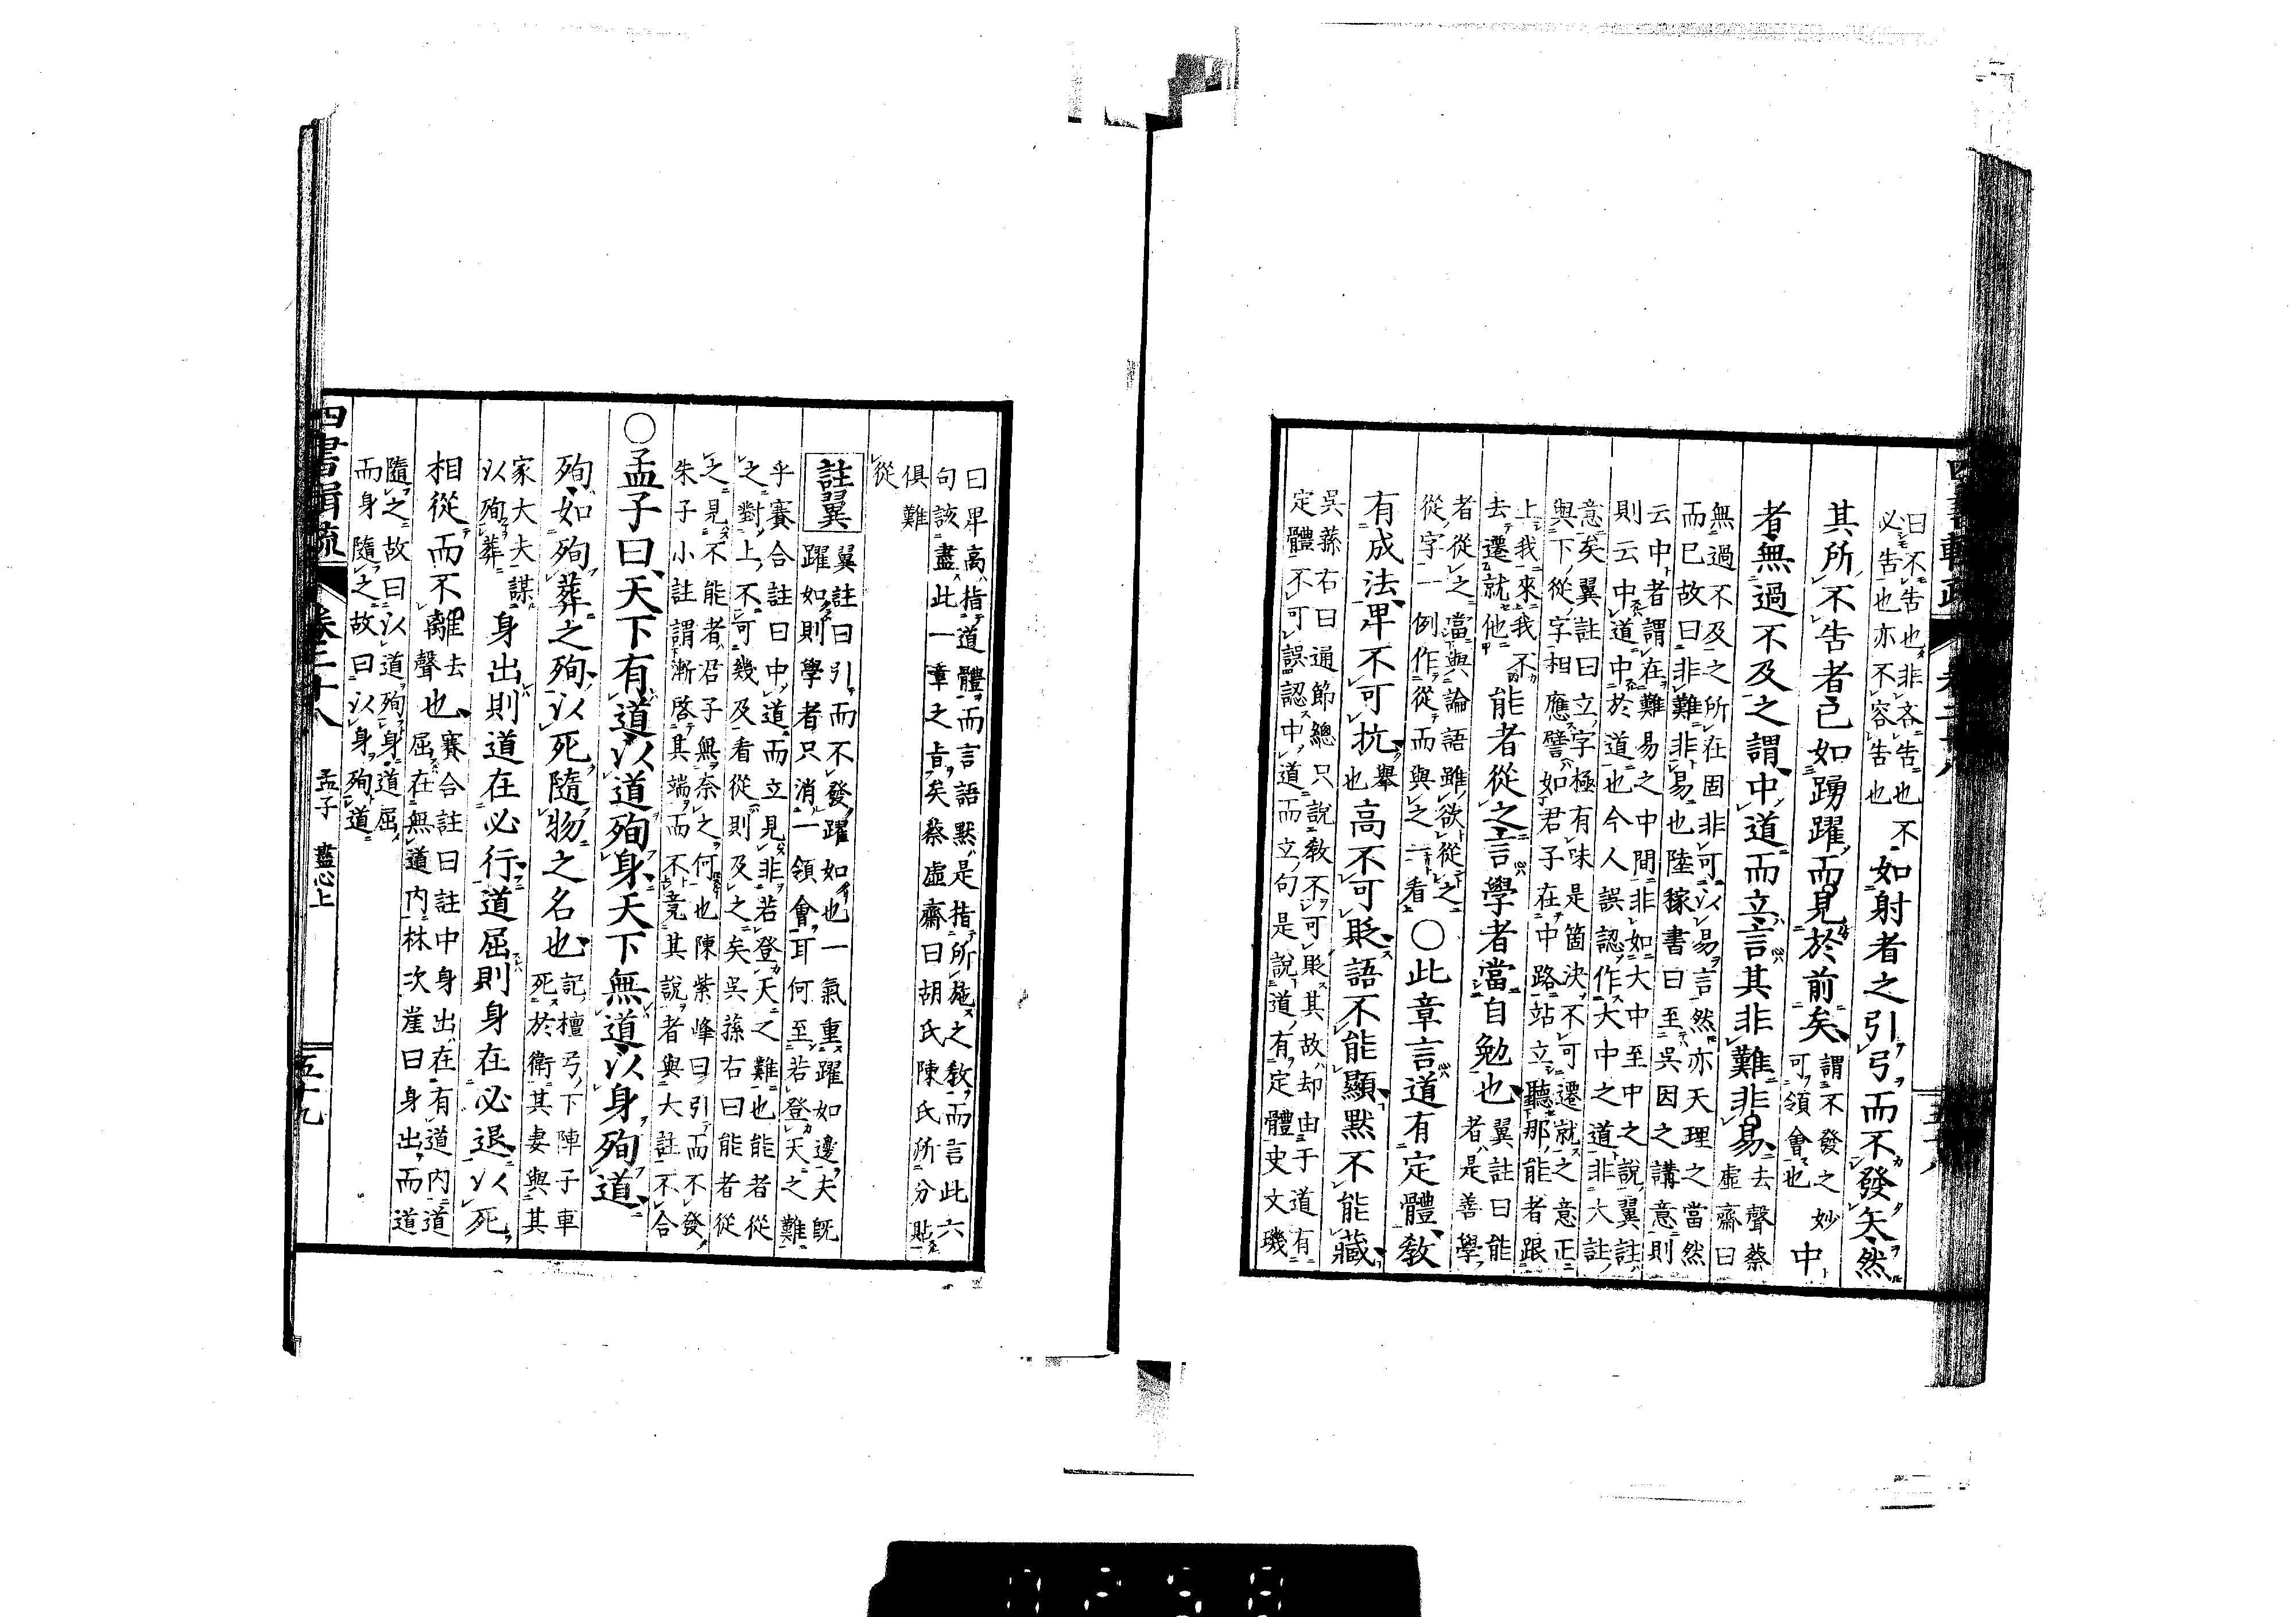 曰不告也非吝告也不
必告也亦不容告也
如射者之引弓而不發矢然
其所不告者已如踴躍而見於前矣
謂不發之妙
可領會也
中
者無過不及之謂中道而立言其非難非易
去聲蔡
虛齋曰
無過不及之所在固非可以易言然亦天理之當然
而已故曰非難非易也陸稼書曰至吳因之講意則
云中者謂在難易之中間非如大中至中之說翼註
則云中道中於道也今人誤認作大中之道非大註
意矣翼註曰立字極有味是箇決不可遷就之意正
與下從字相應譬如君子在中路站立聽那能者跟
上我來我不
去遷就他
能者從之言學者當自勉也
翼註曰能
者是善學
者從之當與論語雖欲從之
從字一例作從而與之二看
○此章言道有定體教
有成法卑不可抗
舉
也
高不可貶語不能顯默不能藏
吳蓀右曰通節總只說敎不可貶其故却由于道有
定體不可誤認中道而立句是說道有定體史文璣
曰卑高指道體而言語默是指所施之敎而言此六
句該盡此一章之旨矣蔡虛齋曰胡氏陳氏所分貼
俱難
從
註翼
翼註曰引而不發躍如也一氣重躍如邊夫旣
躍如則學者只消一領會耳何至若登天之難
乎賽合註曰中道而立見非若登天之難也能者從
之對上不可幾及看從則及之矣吳蓀右曰能者從
之見不能者君子無奈之何也陳紫峰曰引而不發
朱子小註謂漸啓其端而不竟其說者與大註不合
○孟子曰天下有道以道殉身天下無道以身殉道
殉如殉葬之殉以死隨物之名也
記檀弓下陣子車
死於衛其妻與其
家大夫謀
以殉葬
身出則道在必行道屈則身在必退以死
相從而不離
去
聲
也
賽合註曰註中身出在有道内道
屈在無道内林次崖曰身出而道
隨之故曰以道殉身道屈
而身隨之故曰以身殉道
孟子
盡心上
五十九